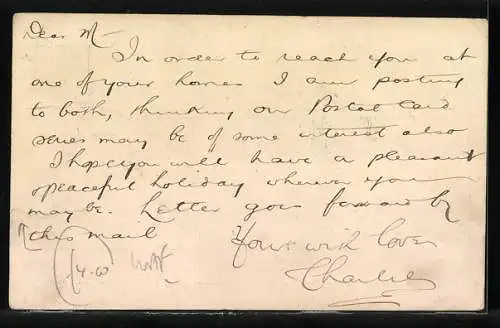 Dear M-
In order to reach you at
one of your homes I am posting
to both, thinking our Postal Card
series may be of some interest also
I hope you will have a pleasant
& peaceful holiday wherever you
may be. Letter goes forward by
this mail
Yours with love
Charlie